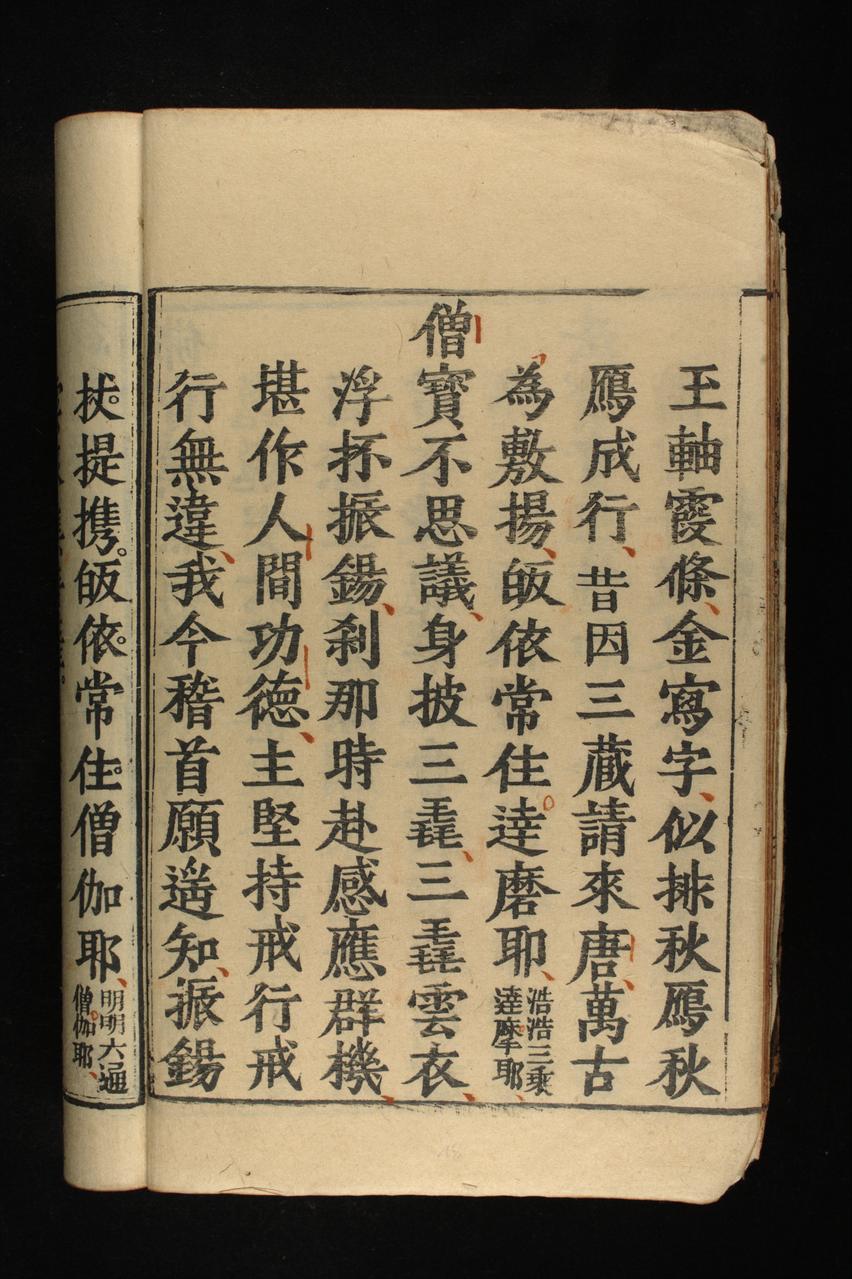 王軸霞條、金寫字、似排秋鴈秋
鴈成行、昔因三藏請來唐、萬古
為敷揚、皈依常住。達磨耶、浩浩三乗
達摩耶、
僧寶不思議、身披三毳、三毳雲衣、
浮抔振錫、刹那時赴感應群機、
堪作人間功德、主堅持戒行戒
行無違、我今稽首願遥知、振錫
扙。提携。皈依。常住。僧伽耶、明明六通
僧伽耶、